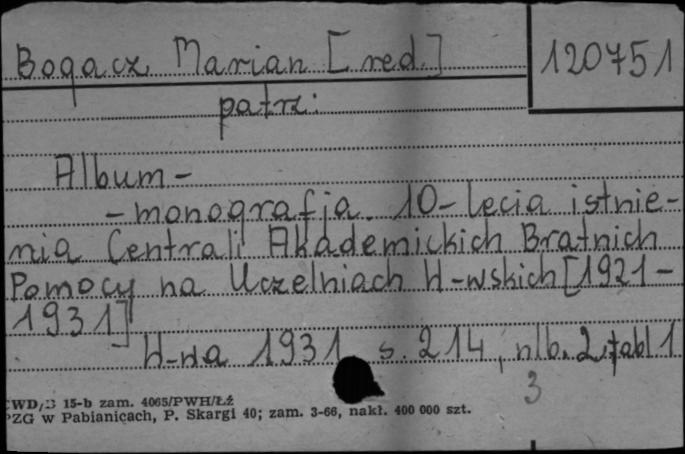 Bogacz Marian [red.]
120751
patrz:
Album-
-monografja 10-lecia istnie-
nia Centrali Akademickich Bratnich
Pomocy na Uczelniach W-wskich [1921-
1931]
W-wa 1931 s. 214, nlb. 2, tabl 1
3
CWD/B 15-b zam. 4065/PWH/Łź
PZG w Pabianicach, P. Skargi 40; zam. 3-66, nakł. 400 000 szt.